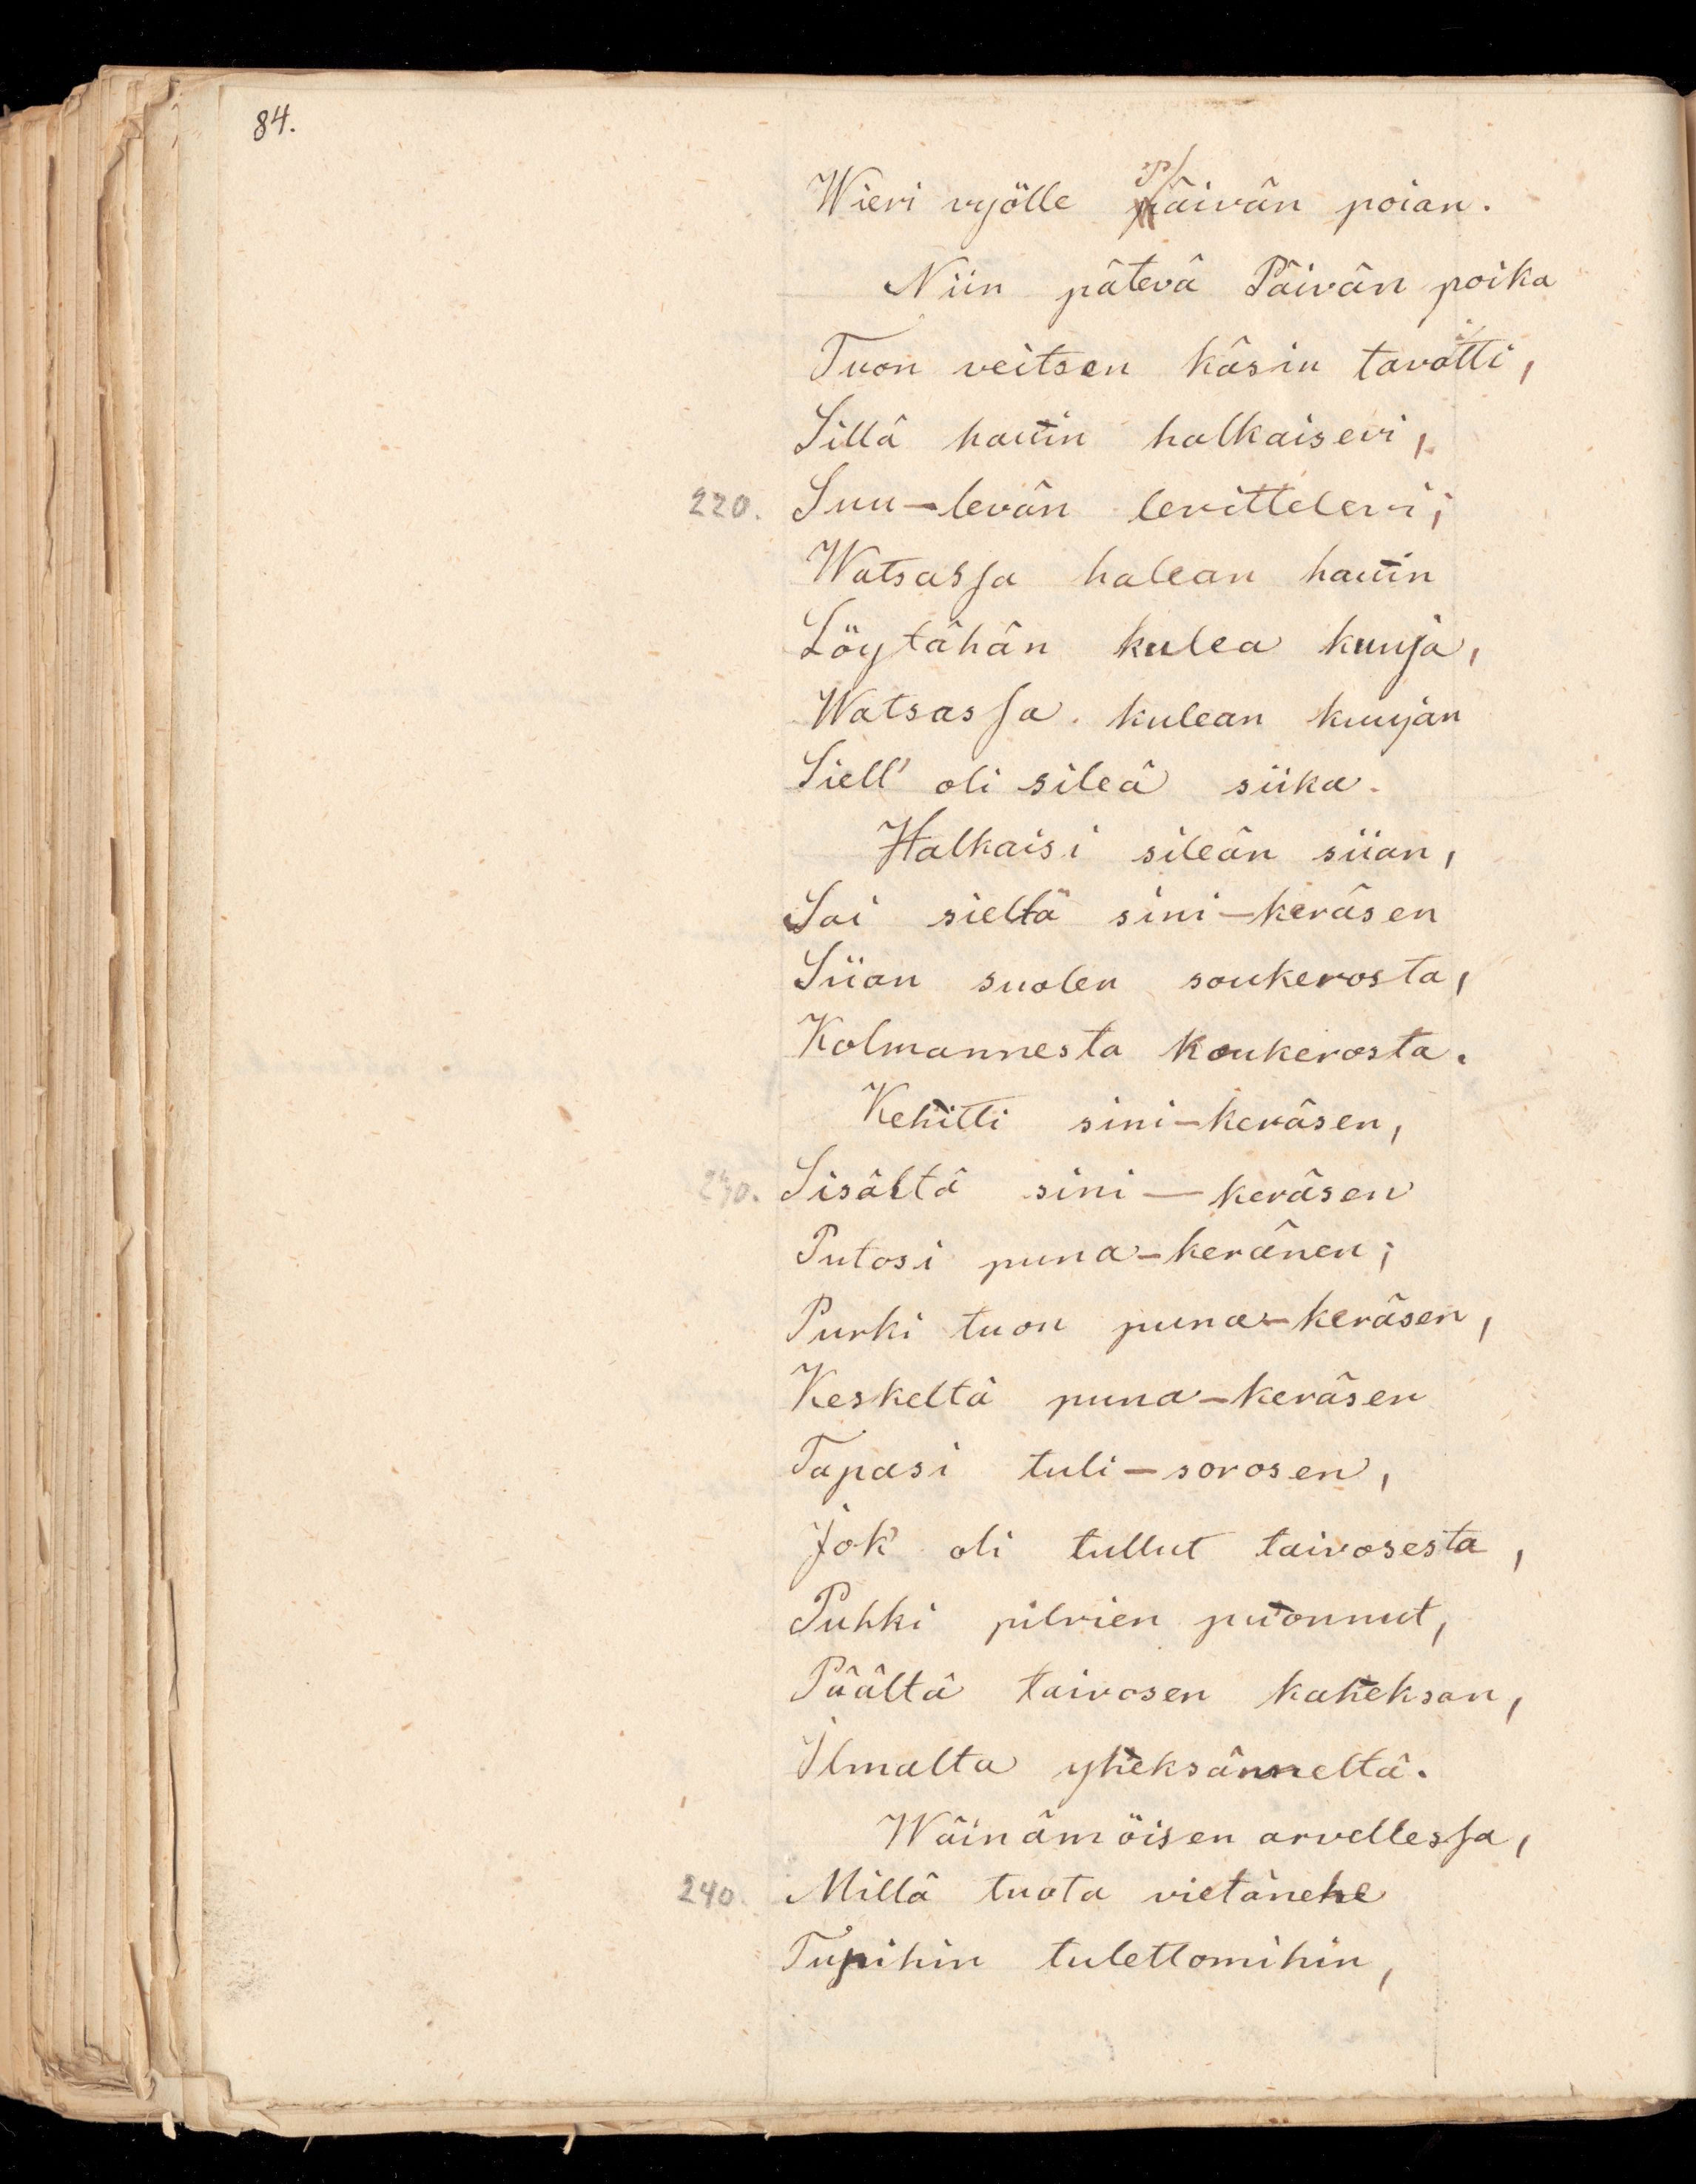 84.
Wieri vyölle Päivän poian.
Niin pätevä Päivän poika
Tuon veitsen käsin tavotti,
Sillä hauin halkaisevi,
220. Suu-levän levittelevi;
Watsassa halean hauin
Löytähän kulea kuuja,
Watsassa kulean kuujan
Siell' oli sileä siika.
Halkaisi sileän siian,
Sai sieltä sini-keräsen
Siian suolen soukerosta,
Kolmannesta koukerosta.
Kehitti sini-keräsen,
230. Sisältä sini-keräsen
Putosi puna-keränen;
Purki tuon puna-keräsen,
Keskeltä puna-keräsen
Tapasi tuli-sorosen,
Jok' oli tullut taivosesta,
Puhki pilvien puonnut,
Päältä taivosen kaheksan,
Ilmalta yheksänneltä.
Wäinämöisen arvellessa,
240. Millä tuota vietänehe
Tupihin tulettomihin,